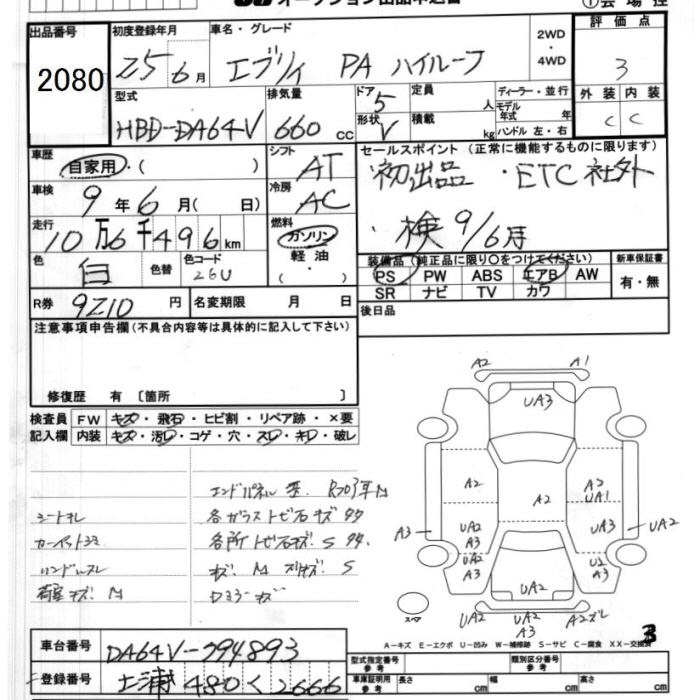 オークション出品申込書
①会場控
出品番号 初度登録年月 車名・グレード 2WD・4WD 評価点
2080 25 6月 エブリイ PA ハイルーフ 3
型式 排気量 ドア 5 定員 人 ディーラー・並行 外装 内装
HBD-DA64V 660 cc 形状 V 積載 kg モデル年式 年 ハンドル 左・右 C C
車歴 自家用・( ) シフト AT セールスポイント (正常に機能するものに限ります)
初出品 ・ETC社外
車検 9年 6月( 日) 冷房 AC
検9/6月
走行 10万6千496km 燃料 ガソリン 軽油 ・( )
色 白 色替 色コード 26U
装備品 (純正品に限り○をつけてください) 新車保証書
PS PW ABS エアB AW 有・無
SR ナビ TV カワ
R券 9210 円 名変期限 月 日
後日品
注意事項申告欄(不具合内容等は具体的に記入して下さい)
修復歴 有 〔箇所 〕
検査員 FW キズ・飛石・ヒビ割・リペア跡・×要
記入欄 内装 キズ・汚レ・コゲ・穴・スレ・キレ・破レ
シートキレ
各ガラストビ石キズ
各所トビ石キズ S
荷室キズ M
A2 A1
UA3
A2 A2 A2 UA1
A3 UA2 A3 UA3 UA2
UA2 A3 UA2 U2 A3
スペア UA2 UA2 A3 A2ズレ
3
A−キズ E−エクボ U−凹み W−補修跡 S−サビ C−腐食 XX−交換済
車台番号 DA64V-794893
登録番号 土浦 480 く 2666
型式指定番号 参考 類別区分番号 参考
車庫証明用 参考 長さ cm 幅 cm 高さ cm